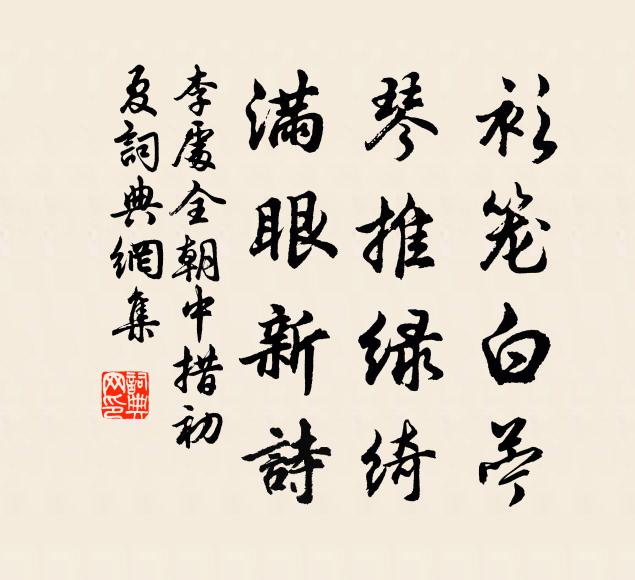 衫笼白苎
琴推绿绮
满眼新詩
李處全朝中措初
夏詞典網集
詞典
网印